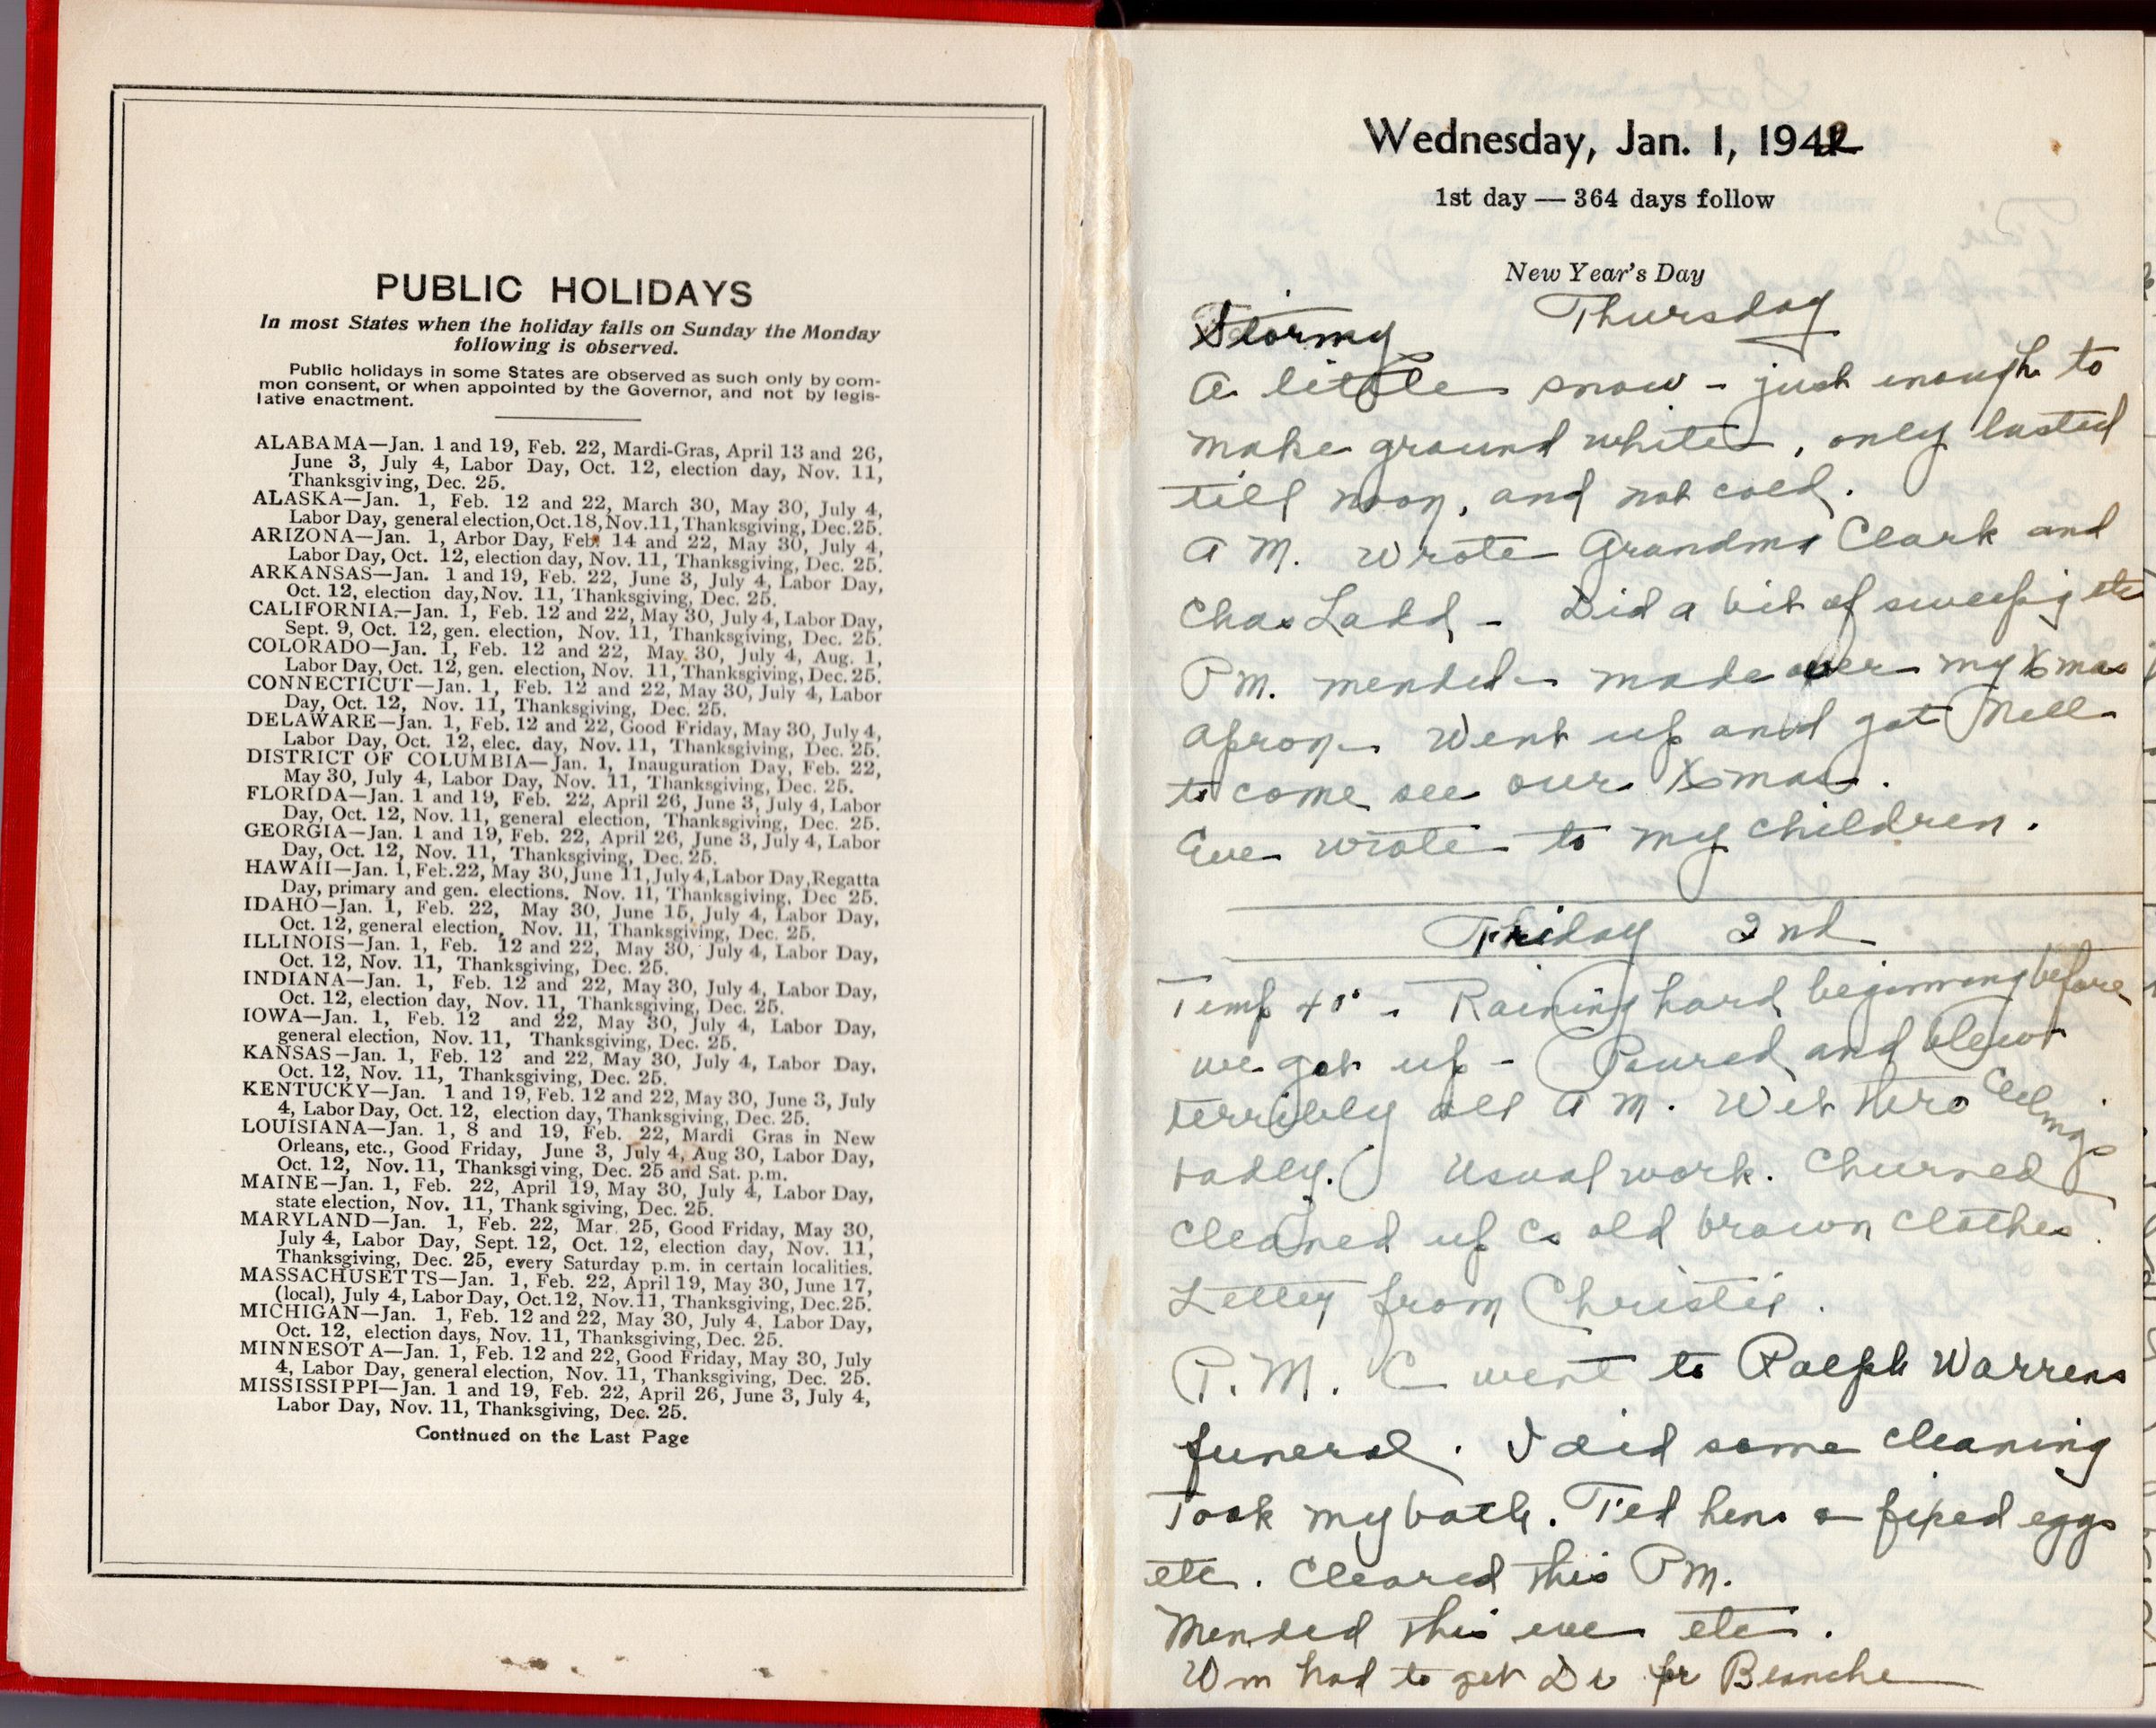 PUBLIC HOLIDAYS
In most States when the holiday falls on Sunday the Monday
following is observed.
Public holidays in some States are observed as such only by com-
mon consent, or when appointed by the Governor, and not by legis-
lative enactment.
ALABAMA—Jan. 1 and 19, Feb. 22, Mardi-Gras, April 13 and 26,
June 3, July 4, Labor Day, Oct. 12, election day, Nov. 11,
Thanksgiving, Dec. 25.
ALASKA—Jan. 1, Feb. 12 and 22, March 30, May 30, July 4,
Labor Day, general election, Oct. 18, Nov. 11, Thanksgiving, Dec. 25.
ARIZONA—Jan. 1, Arbor Day, Feb. 14 and 22, May 30, July 4,
Labor Day, Oct. 12, election day, Nov. 11, Thanksgiving, Dec. 25.
ARKANSAS—Jan. 1 and 19, Feb. 22, June 3, July 4, Labor Day,
Oct. 12, election day, Nov. 11, Thanksgiving, Dec. 25.
CALIFORNIA—Jan. 1, Feb. 12 and 22, May 30, July 4, Labor Day,
Sept. 9, Oct. 12, gen. election, Nov. 11, Thanksgiving, Dec. 25.
COLORADO—Jan. 1, Feb. 12 and 22, May 30, July 4, Aug. 1,
Labor Day, Oct. 12, gen. election, Nov. 11, Thanksgiving, Dec. 25.
CONNECTICUT—Jan. 1, Feb. 12 and 22, May 30, July 4, Labor
Day, Oct. 12, Nov. 11, Thanksgiving, Dec. 25.
DELAWARE—Jan. 1, Feb. 12 and 22, Good Friday, May 30, July 4,
Labor Day, Oct. 12, elec. day, Nov. 11, Thanksgiving, Dec. 25.
DISTRICT OF COLUMBIA—Jan. 1, Inauguration Day, Feb. 22,
May 30, July 4, Labor Day, Nov. 11, Thanksgiving, Dec. 25.
FLORIDA—Jan. 1 and 19, Feb. 22, April 26, June 3, July 4, Labor
Day, Oct. 12, Nov. 11, general election, Thanksgiving, Dec. 25.
GEORGIA—Jan. 1 and 19, Feb. 22, April 26, June 3, July 4, Labor
Day, Oct. 12, Nov. 11, Thanksgiving, Dec. 25.
HAWAII—Jan. 1, Feb. 22, May 30, June 11, July 4, Labor Day, Regatta
Day, primary and gen. elections, Nov. 11, Thanksgiving, Dec 25.
IDAHO—Jan. 1, Feb. 22, May 30, June 15, July 4, Labor Day,
Oct. 12, general election, Nov. 11, Thanksgiving, Dec. 25.
ILLINOIS—Jan. 1, Feb. 12 and 22, May 30, July 4, Labor Day,
Oct. 12, Nov. 11, Thanksgiving, Dec. 25.
INDIANA—Jan. 1, Feb. 12 and 22, May 30, July 4, Labor Day,
Oct. 12, election day, Nov. 11, Thanksgiving, Dec. 25.
IOWA—Jan. 1, Feb. 12 and 22, May 30, July 4, Labor Day,
general election, Nov. 11, Thanksgiving, Dec. 25.
KANSAS—Jan. 1, Feb. 12 and 22, May 30, July 4, Labor Day,
Oct. 12, Nov. 11, Thanksgiving, Dec. 25.
KENTUCKY—Jan. 1 and 19, Feb. 12 and 22, May 30, June 3, July
4, Labor Day, Oct. 12, election day, Thanksgiving, Dec. 25.
LOUISIANA—Jan. 1, 8 and 19, Feb. 22, Mardi Gras in New
Orleans, etc., Good Friday, June 3, July 4, Aug 30, Labor Day,
Oct. 12, Nov. 11, Thanksgiving, Dec. 25 and Sat. p.m.
MAINE—Jan. 1, Feb. 22, April 19, May 30, July 4, Labor Day,
state election, Nov. 11, Thanksgiving, Dec. 25.
MARYLAND—Jan. 1, Feb. 22, Mar. 25, Good Friday, May 30,
July 4, Labor Day, Sept. 12, Oct. 12, election day, Nov. 11,
Thanksgiving, Dec. 25, every Saturday p.m. in certain localities.
MASSACHUSETTS—Jan. 1, Feb. 22, April 19, May 30, June 17,
(local), July 4, Labor Day, Oct. 12, Nov. 11, Thanksgiving, Dec. 25.
MICHIGAN—Jan. 1, Feb. 12 and 22, May 30, July 4, Labor Day,
Oct. 12, election days, Nov. 11, Thanksgiving, Dec. 25.
MINNESOTA—Jan. 1, Feb. 12 and 22, Good Friday, May 30, July
4, Labor Day, general election, Nov. 11, Thanksgiving, Dec. 25.
MISSISSIPPI—Jan. 1 and 19, Feb. 22, April 26, June 3, July 4,
Labor Day, Nov. 11, Thanksgiving, Dec. 25.
Continued on the Last Page
Wednesday, Jan. 1, 1942
1st day — 364 days follow
New Year's Day
Stormy Thursday
A little snow - just enough to
make ground white, only lasted
till noon, and not cold.
A M. Wrote Grandma Clark and
Chas Ladd - Did a bit of sweepig etc
P M. mended - made over my Xmas
apron. Went up and got Nell
to come see our Xmas.
Eve wrote to my children.
Friday 2nd
Temp 40° - Raining hard beginning before
we got up - Poured and blew
terribly all A M. Wet thro ceilings
badly. Usual work. Churned
Cleaned up Cs old brown clothes.
Letter from Christie.
P. M. C went to Ralph Warrens
funeral. I did some cleaning
Took my bath. Fed hens & fixed eggs
etc. Cleared this P M.
Mended this eve etc.
Wm had to get Dr for Blanche